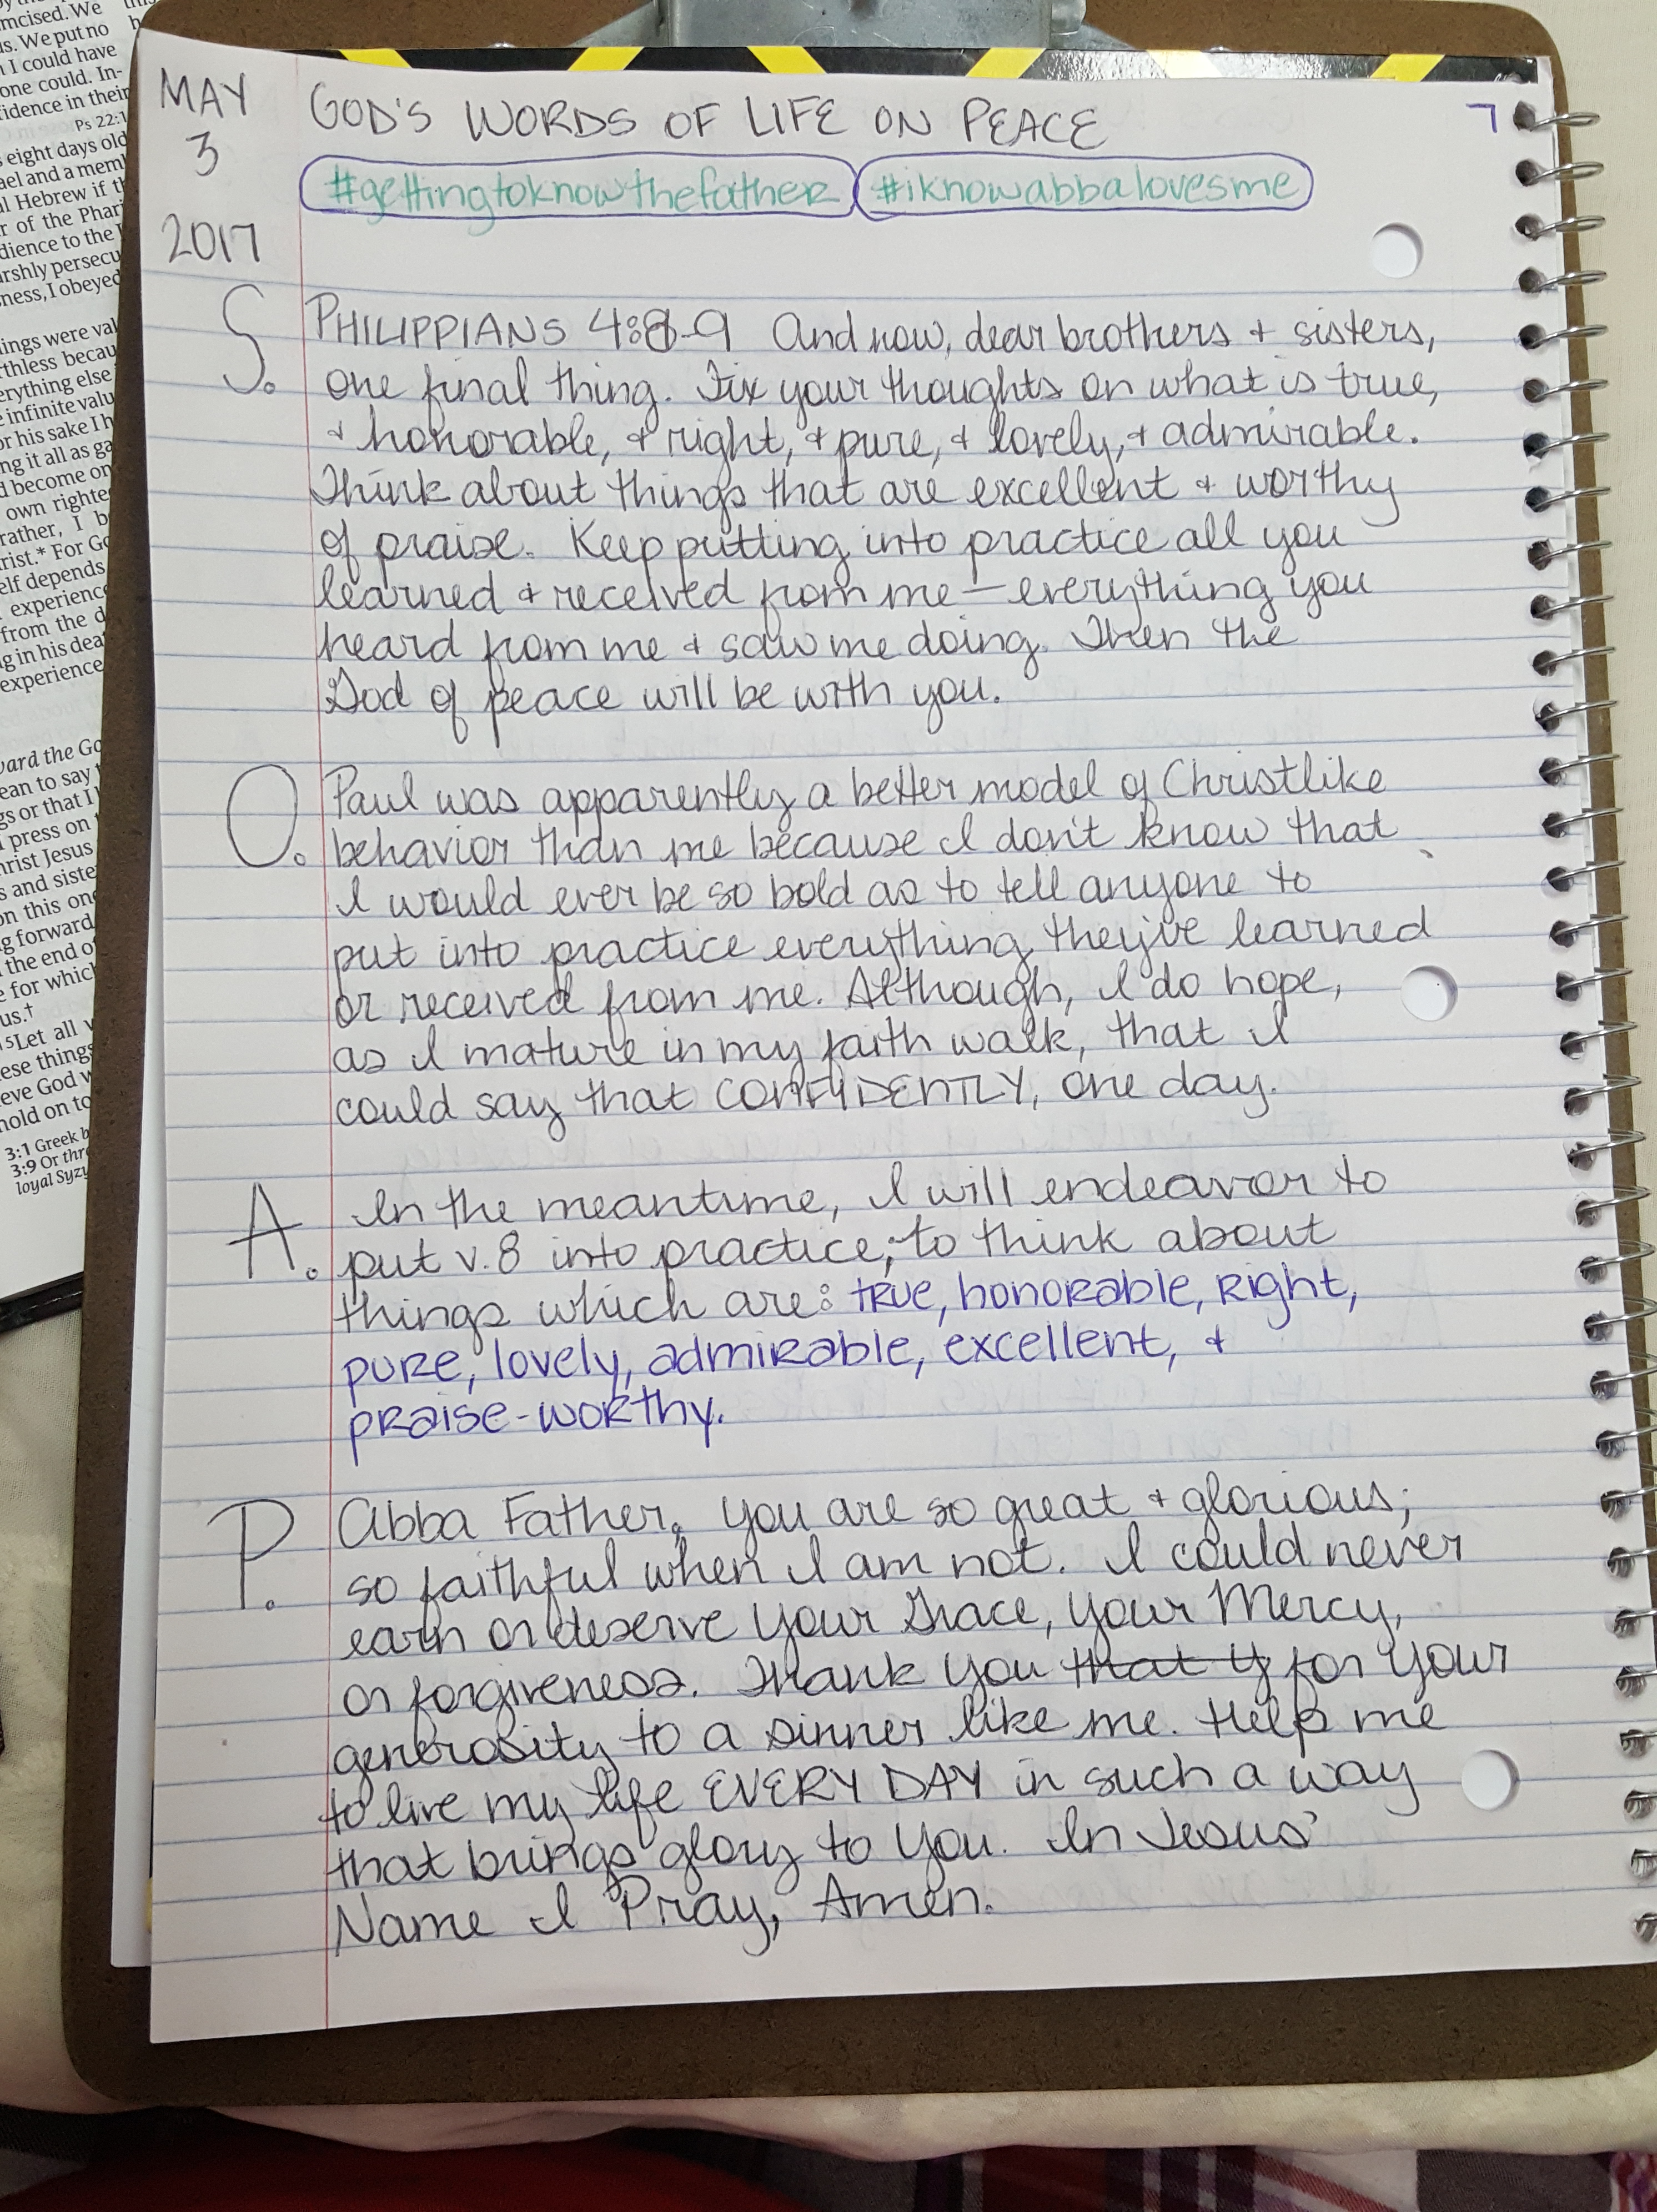 mcised. We
us. We put no
I could have
one could. In-
fidence in their
Ps 22:1
eight days old
ael and a mem
Hebrew if
r of the Phar
dience to the
rshly persecu
ness, I obeyed
ings were val
rthless becau
erything else
infinite valu
or his sake I h
ng it all as ga
d become on
own righte
rather, I
rist.* For Go
elf depends
experience
from the d
g in his dea
experience
ard the Go
ean to say
gs or that I
press on
hrist Jesus
s and siste
on this one
g forward
the end of
e for which
us.†
15Let all
ese things
eve God w
hold on to
3:1 Greek b
3:9 Or thr
loyal Syzy
MAY
3
2017
GOD'S WORDS OF LIFE ON PEACE
7
#gettingtoknowthefather #iknowabbalovesme
S. PHILIPPIANS 4:8-9 And now, dear brothers + sisters,
one final thing. Fix your thoughts on what is true,
+ honorable, + right, + pure, + lovely, + admirable.
Think about things that are excellent + worthy
of praise. Keep putting into practice all you
learned + received from me — everything you
heard from me + saw me doing. Then the
God of peace will be with you.
O. Paul was apparently a better model of Christlike
behavior than me because I don't know that
I would ever be so bold as to tell anyone to
put into practice everything they've learned
or received from me. Although, I do hope,
as I mature in my faith walk, that I
could say that CONFIDENTLY, one day.
A. In the meantime, I will endeavor to
put v.8 into practice; to think about
things which are: true, honorable, right,
pure, lovely, admirable, excellent, +
praise-worthy.
P. Abba Father, You are so great + glorious;
so faithful when I am not. I could never
earn or deserve Your Grace, Your Mercy,
or forgiveness. Thank You that y for Your
generosity to a sinner like me. Help me
to live my life EVERY DAY in such a way
that brings glory to You. In Jesus'
Name I Pray, Amen.